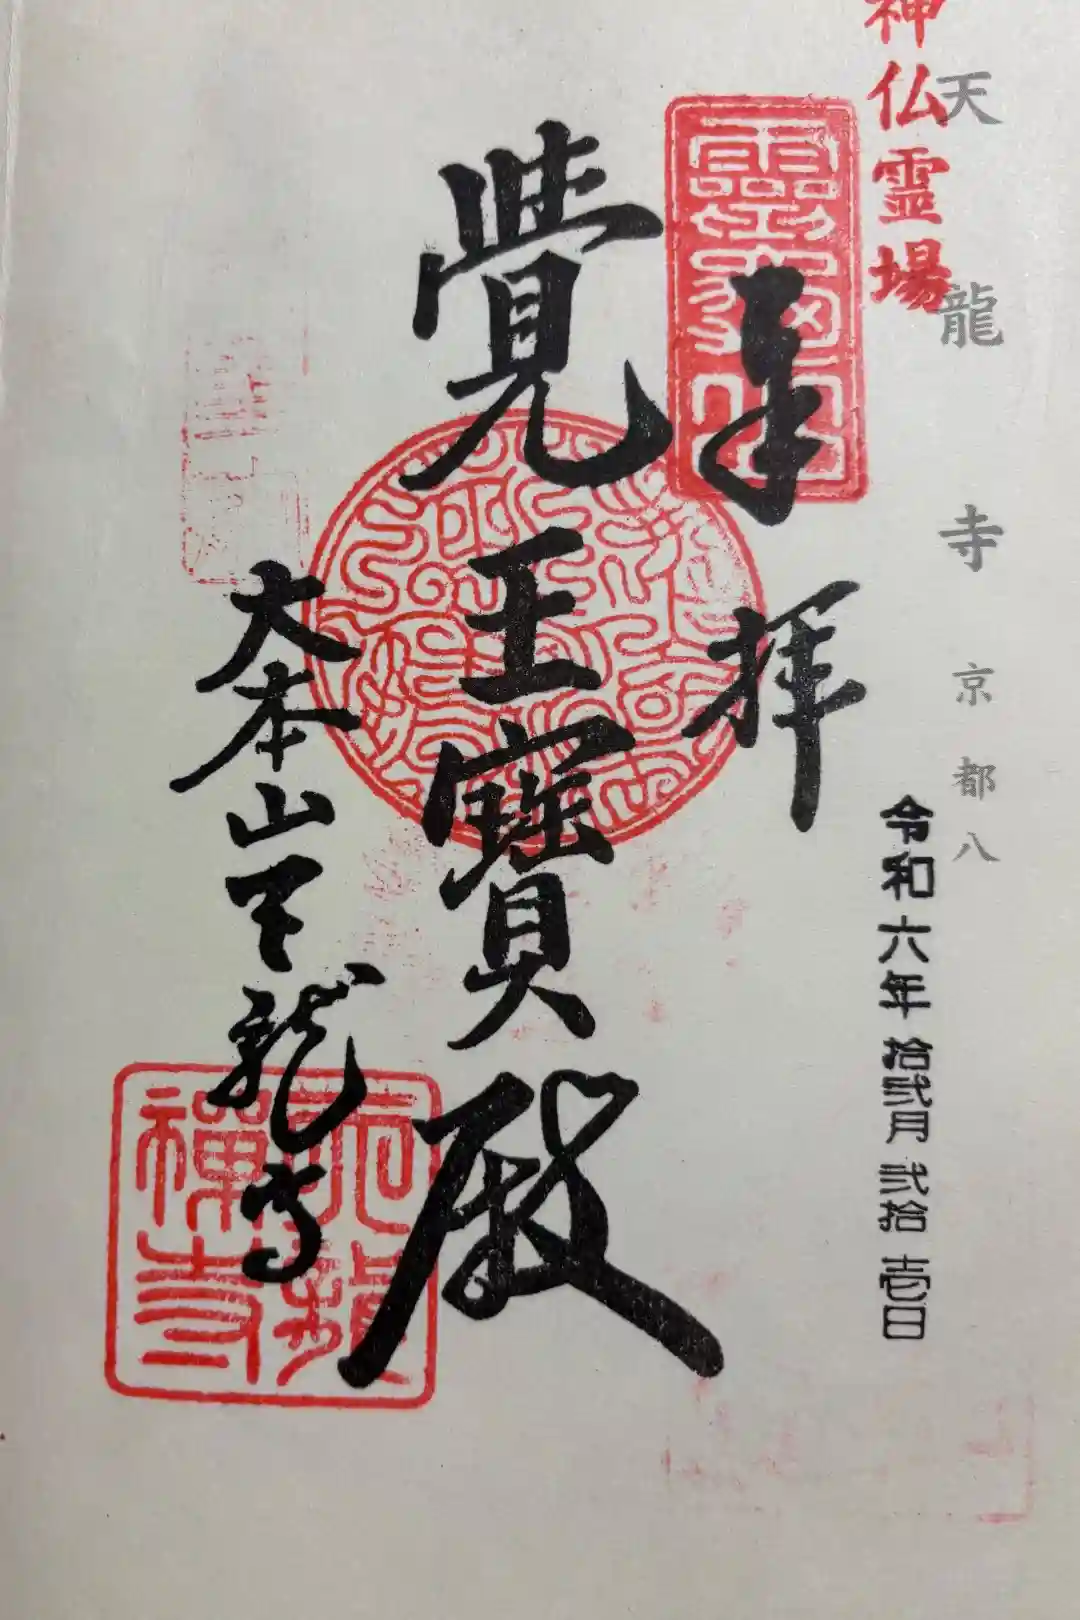 神仏霊場
天龍寺 京都八
令和六年拾弐月弐拾壱日
奉拝
靈亀山
覺王寳殿
大本山天龍寺
天龍禅寺